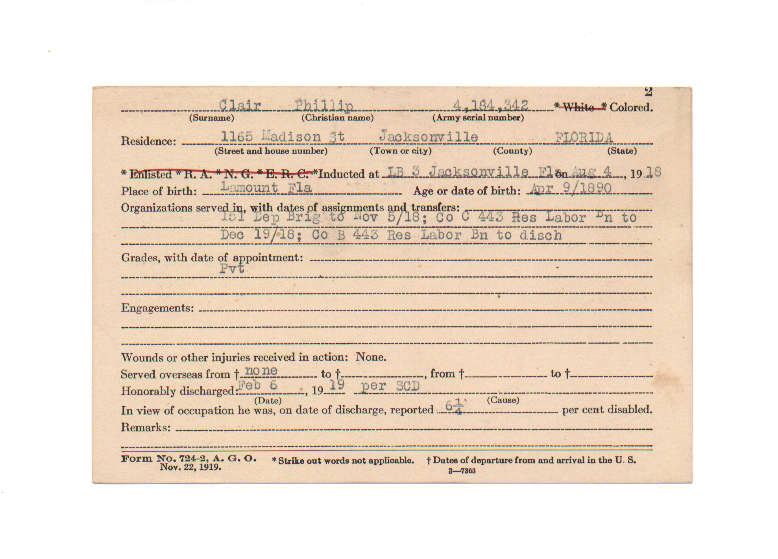 2
Clair Phillip 4,164,342 * White * Colored.
(Surname) (Christian name) (Army serial number)
Residence: 1165 Madison St Jacksonville FLORIDA
(Street and house number) (Town or city) (County) (State)
* Enlisted * R. A. * N. G. * E. R. C. * Inducted at LB 3 Jacksonville Fla on Aug 4, 1918
Place of birth: Lamount Fla Age or date of birth: Apr 9/1890
Organizations served in, with dates of assignments and transfers:
151 Dep Brig to Nov 5/18; Co C 443 Res Labor Bn to
Dec 19/18; Co B 443 Res Labor Bn to disch
Grades, with date of appointment:
Pvt
Engagements:
Wounds or other injuries received in action: None.
Served overseas from † none to †, from † to †
Honorably discharged: Feb 6, 1919 per SCD
(Date) (Cause)
In view of occupation he was, on date of discharge, reported 6¼ per cent disabled.
Remarks:
Form No. 724-2, A. G. O. * Strike out words not applicable. † Dates of departure from and arrival in the U. S.
Nov. 22, 1919. 3—7303